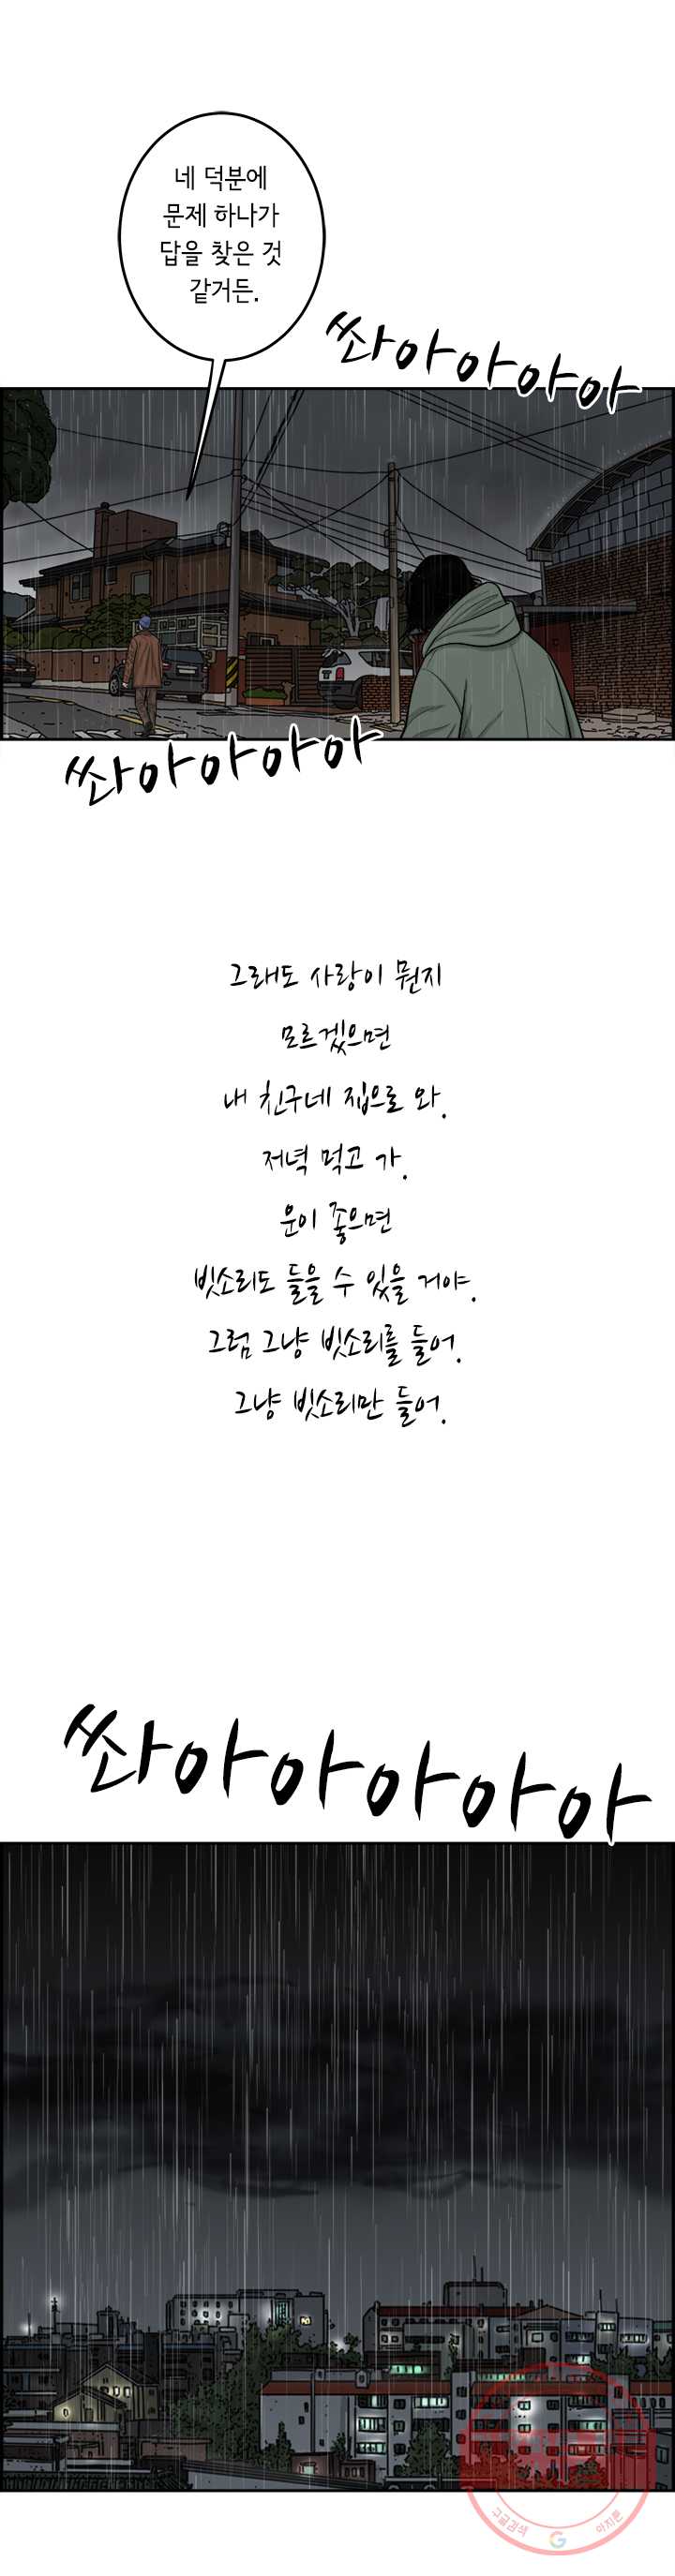 네 덕분에
문제 하나가
답을 찾은 것
같거든.
쏴아아아아
쏴아아아아
그래도 사랑이 뭔지
모르겠으면
내 친구네 집으로 와.
저녁 먹고 가.
운이 좋으면
빗소리도 들을 수 있을 거야.
그럼 그냥 빗소리를 들어.
그냥 빗소리만 들어.
쏴아아아아아
구글검색
G